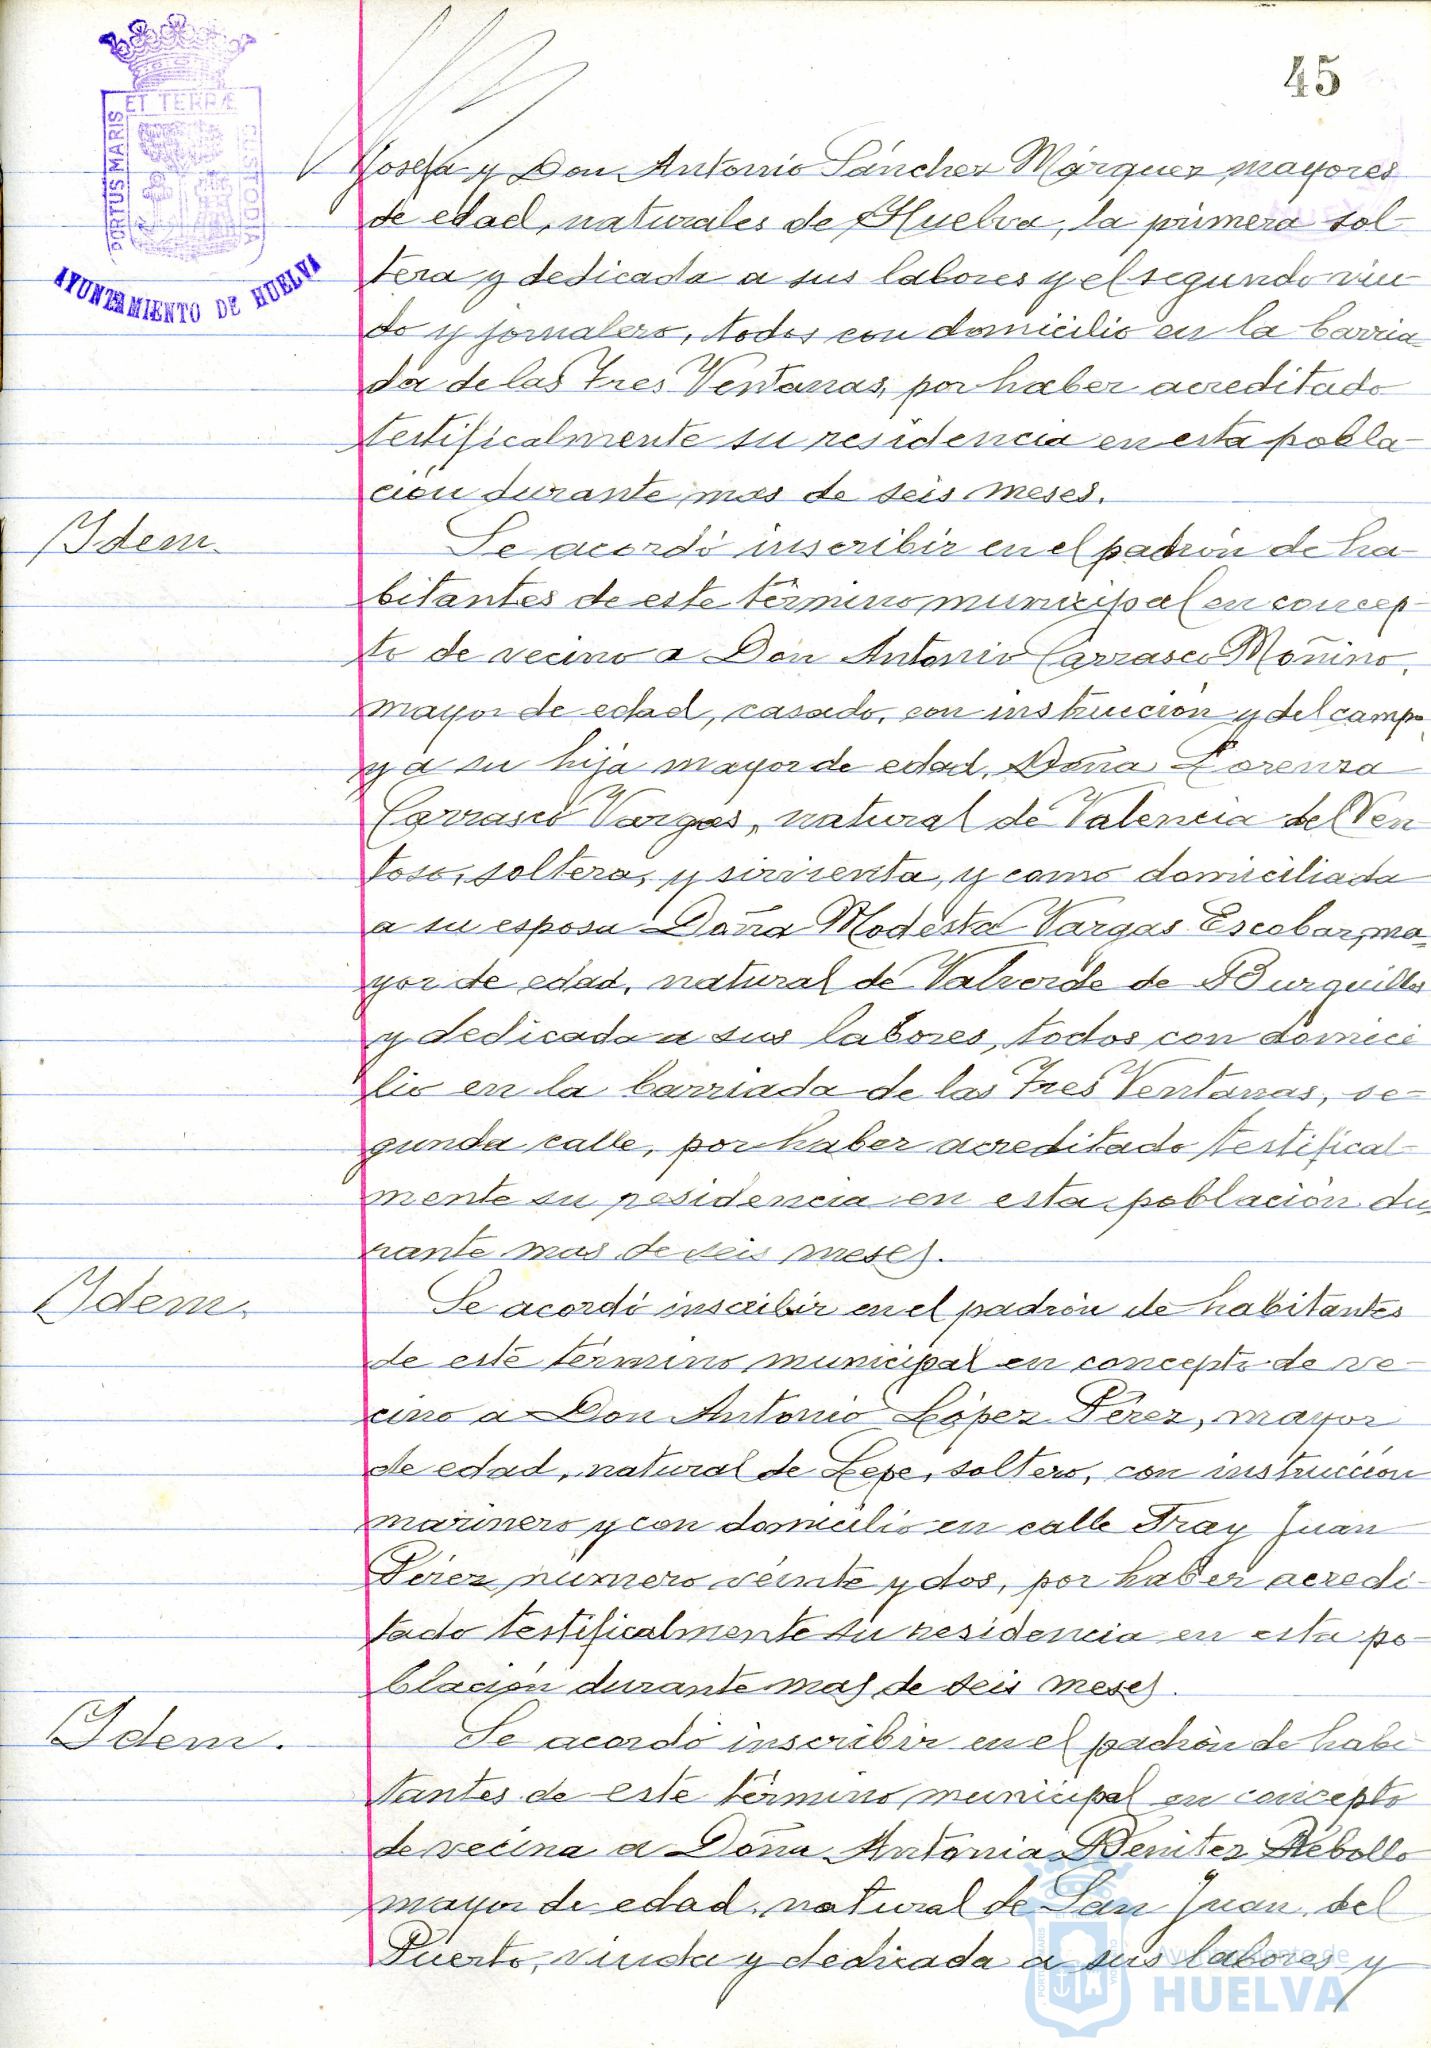 45
ET TERRÆ
PORTUS MARIS
CUSTODIA
AYUNTAMIENTO DE HUELVA
Josefa y Don Antonio Sánchez Márquez, mayores
de edad, naturales de Huelva, la primera sol-
tera y dedicada a sus labores y el segundo viu-
do y jornalero, todos con domicilio en la barria-
da de las Tres Ventanas, por haber acreditado
testificalmente su residencia en esta pobla-
ción durante mas de seis meses.
Idem.
Se acordó inscribir en el padrón de ha-
bitantes de este término municipal en concep-
to de vecino a Don Antonio Carrasco Moñino,
mayor de edad, casado, con instrucción y del campo,
y a su hija mayor de edad, Doña Lorenza
Carrasco Vargas, natural de Valencia del Ven
toso, soltera, y sirvienta, y como domiciliada
a su esposa Doña Modesta Vargas Escobar, ma-
yor de edad, natural de Valverde de Burguillos
y dedicada a sus labores, todos con domici
lio en la barriada de las Tres Ventanas, se-
gunda calle, por haber acreditado testifical-
mente su residencia en esta población du-
rante mas de seis meses.
Idem.
Se acordó inscribir en el padrón de habitantes
de este término municipal en concepto de ve-
cino a Don Antonio López Pérez, mayor
de edad, natural de Lepe, soltero, con instrucción
marinero y con domicilio en calle Fray Juan
Pérez número veinte y dos, por haber acredi-
tado testificalmente su residencia en esta po-
blación durante mas de seis meses.
Idem.
Se acordó inscribir en el padrón de habi-
tantes de este término municipal en concepto
de vecina a Doña Antonia Benitez Rebollo
mayor de edad, natural de San Juan del
Puerto, viuda y dedicada a sus labores y
Ayuntamiento de
HUELVA